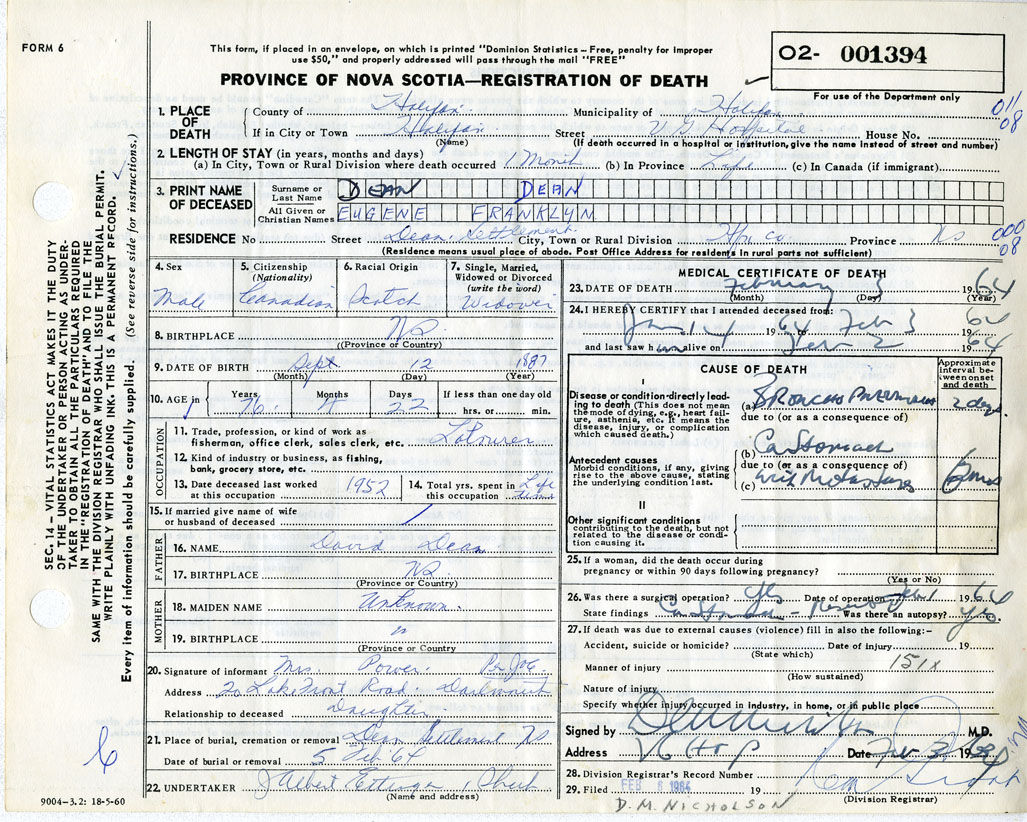 FORM 6
This form, if placed in an envelope, on which is printed "Dominion Statistics – Free, penalty for improper
use $50," and properly addressed will pass through the mail "FREE"
PROVINCE OF NOVA SCOTIA—REGISTRATION OF DEATH
02- 001394
For use of the Department only
011
08
1. PLACE OF DEATH
County of Halifax Municipality of Halifax
If in City or Town Halifax Street V G Hospital House No.
(Name) (If death occurred in a hospital or institution, give the name instead of street and number)
2. LENGTH OF STAY (in years, months and days)
(a) In City, Town or Rural Division where death occurred 1 Month (b) In Province Life (c) In Canada (if immigrant)
3. PRINT NAME OF DECEASED
Surname or Last Name DEAN DEAN
All Given or Christian Names EUGENE FRANKLYN
RESIDENCE No Street Dean Settlement City, Town or Rural Division Hfx Co. Province NS
(Residence means usual place of abode. Post Office Address for residents in rural parts not sufficient)
000
08
4. Sex Male
5. Citizenship (Nationality) Canadian
6. Racial Origin Scotch
7. Single, Married, Widowed or Divorced (write the word) Widower
8. BIRTHPLACE NS
((Province or Country)
9. DATE OF BIRTH Sept 12 1887
(Month) (Day) (Year)
10. AGE in Years 76 Months 4 Days 22 If less than one day old hrs. or min.
OCCUPATION
11. Trade, profession, or kind of work as fisherman, office clerk, sales clerk, etc. Labourer
12. Kind of industry or business, as fishing, bank, grocery store, etc.
13. Date deceased last worked at this occupation 1952
14. Total yrs. spent in this occupation Life
15. If married give name of wife or husband of deceased
FATHER
16. NAME David Dean
17. BIRTHPLACE NS
(Province or Country)
MOTHER
18. MAIDEN NAME Unknown.
19. BIRTHPLACE "
(Province or Country
20. Signature of informant Mrs. Power Per
Address 20 Lakefront Road. Dartmouth
Relationship to deceased Daughter
21. Place of burial, cremation or removal Dean Settlement NS
Date of burial or removal 5 Feb 64
22. UNDERTAKER J Albert Ettinger
(Name and address)
9004-3.2: 18-5-60
6
SEC. 14 – VITAL STATISTICS ACT MAKES IT THE DUTY
OF THE UNDERTAKER OR PERSON ACTING AS UNDER-
TAKER TO OBTAIN ALL THE PARTICULARS REQUIRED
IN THE "REGISTRATION OF DEATH" AND TO FILE THE
SAME WITH THE DIVISION REGISTRAR WHO SHALL ISSUE THE BURIAL PERMIT.
WRITE PLAINLY WITH UNFADING INK. THIS IS A PERMANENT RECORD.
Every item of information should be carefully supplied. (See reverse side for instructions.)
MEDICAL CERTIFICATE OF DEATH
23. DATE OF DEATH February 3 1964
(Month) (Day) (Year)
24. I HEREBY CERTIFY that I attended deceased from:
Jan 14 1964 Feb 3 1964
and last saw h im alive on Feb 2 1964
CAUSE OF DEATH
Approximate interval between onset and death
I
Disease or condition directly leading to death (This does not mean the mode of dying, e.g., heart failure, asthenia, etc. It means the disease, injury, or complication which caused death.)
(a) Broncho Pneumonia 2 days
due to (or as a consequence of)
Antecedent causes
Morbid conditions, if any, giving rise to the above cause, stating the underlying condition last.
(b) Ca Stomach
due to (or as a consequence of)
(c) with Metastases 6 mos
II
Other significant conditions
contributing to the death, but not related to the disease or condition causing it.
25. If a woman, did the death occur during pregnancy or within 90 days following pregnancy?
(Yes or No)
26. Was there a surgical operation? Yes Date of operation 1964
State findings Ca Stomach – Was there an autopsy? Yes.
27. If death was due to external causes (violence) fill in also the following:–
Accident, suicide or homicide? Date of injury 19
(State which)
Manner of injury 151X
(How sustained)
Nature of injury
Specify whether injury occurred in industry, in home, or in public place
Signed by M.D.
Address V G Hosp Date Feb 3 1964
28. Division Registrar's Record Number
29. Filed FEB 1964 19
(Division Registrar)
D. M. NICHOLSON